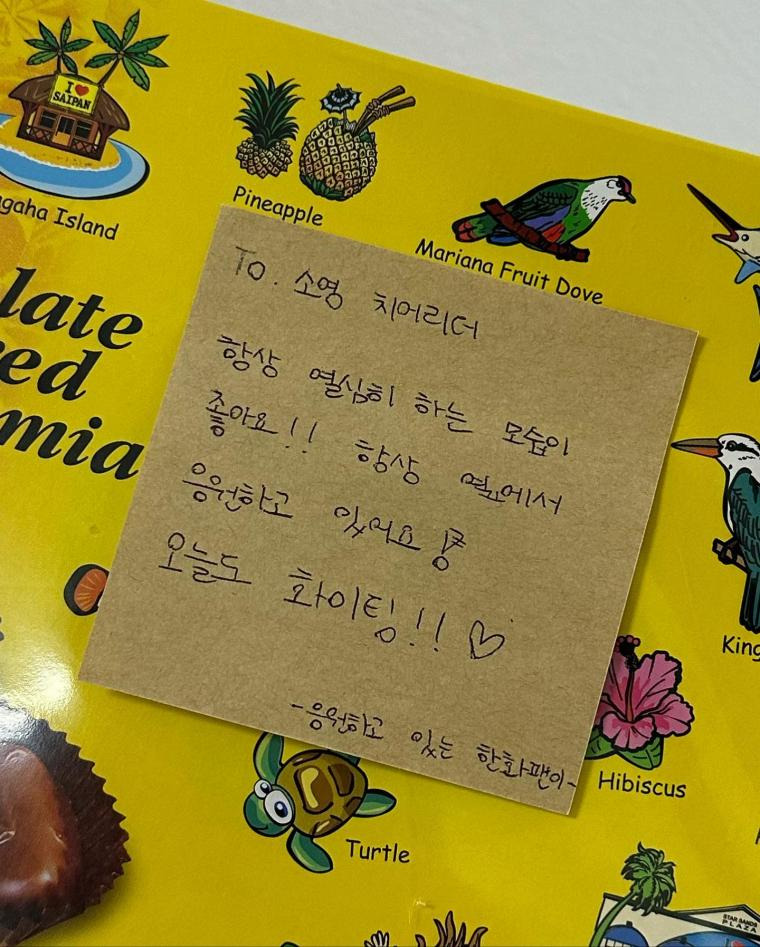 I ♥ SAIPAN
gaha Island
Pineapple
Mariana Fruit Dove
late
ed
mia
To. 소영 치어리더
항상 열심히 하는 모습이
좋아요!! 항상 옆에서
응원하고 있어요
오늘도 화이팅!! ♡
-응원하고 있는 한화팬이-
King
Hibiscus
Turtle
STAR SANDS
PLAZA